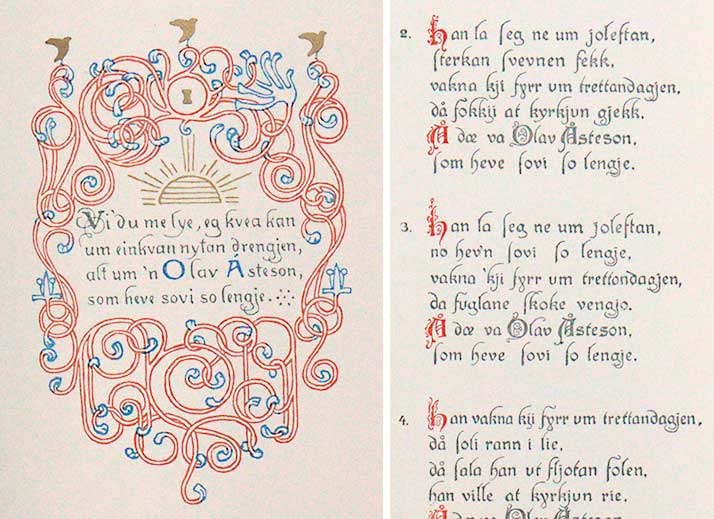 Vi du me lye, eg kvea kan
um einkvan nytan drengjen,
alt um 'n Olav Åsteson,
som heve sovi so lengje.
2. Han la seg ne um joleftan,
sterkan svevnen fekk,
vakna kji fyrr um trettandagjen,
då folkji at kyrkjun gjekk.
Å dæ va Olav Åsteson,
som heve sovi so lengje.
3. Han la seg ne um joleftan,
no hev'n sovi so lengje,
vakna 'kji fyrr um trettandagjen,
da fuglane skoke vengjo.
Å dæ va Olav Åsteson,
som heve sovi so lengje.
4. Han vakna kji fyrr um trettandagjen,
då soli rann i lie,
då sala han ut fljotan folen,
han ville at kyrkjun rie.
Å dæ va Olav Åsteson